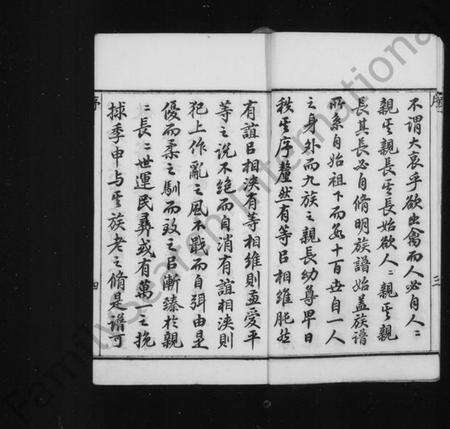 不謂大哀乎欲出禽而人必自人〻
親其親長其長始欲人〻親其親
長其長必自脩明族譜始蓋族譜
所系自始祖下而爲十百世自一人
之身外而九族之親長幼尊卑日
秩其序釐然有等呂相維肫然
有誼呂相浹有等相維則孟愛平
等之說不絕而自消有誼相浹則
犯上作亂之風不戢而自弭由是
優而柔之馴而致之呂漸臻於親
〻長〻世運民彝或有萬一之挽
捄季申與其族老之脩是譜可
序 三
序 四
FamilySearch International